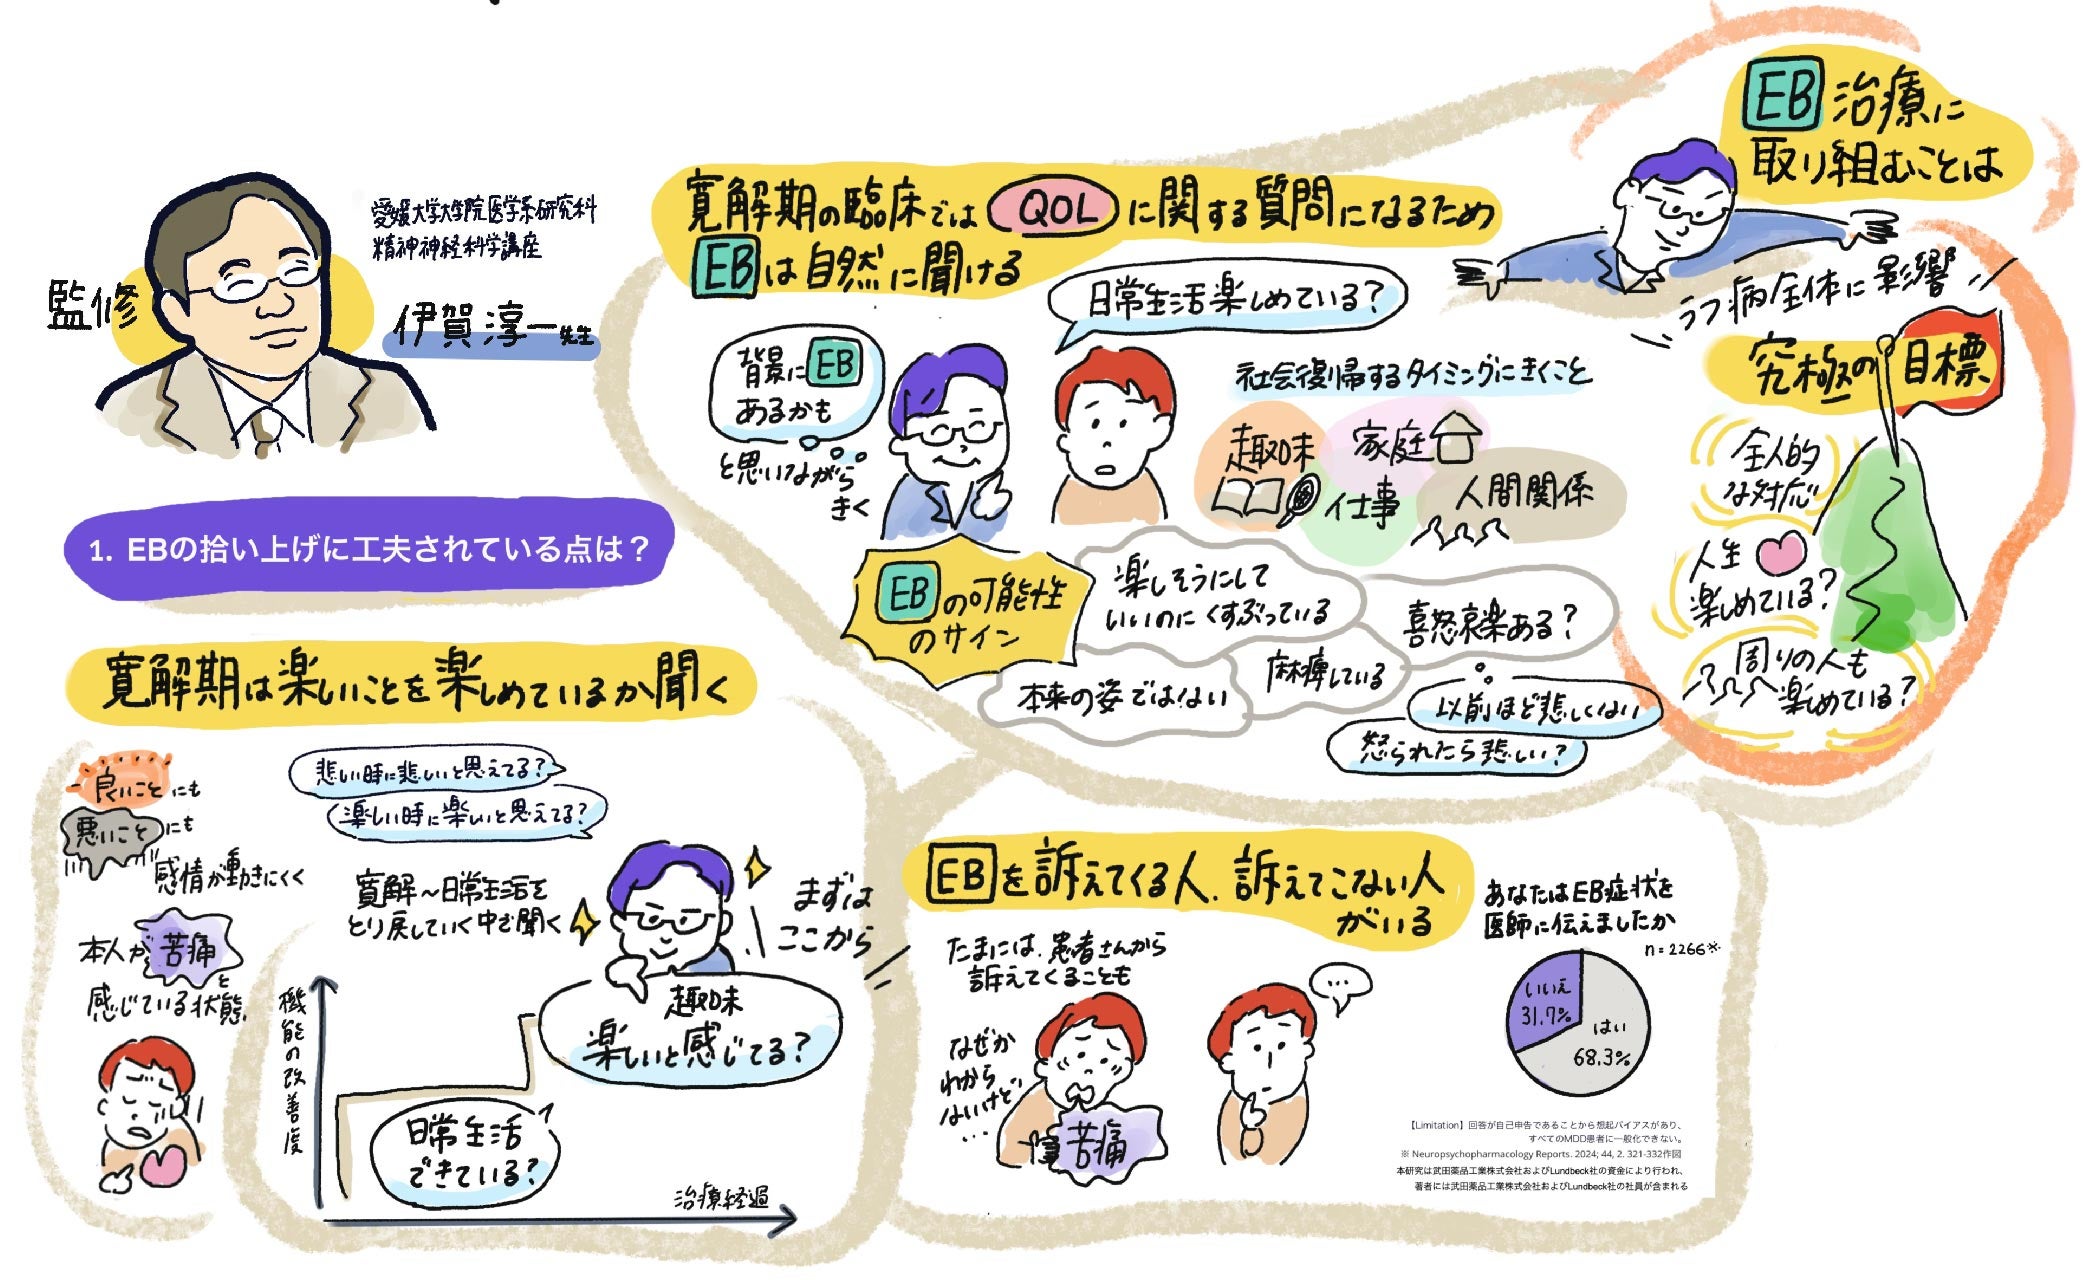 監修
愛媛大学大学院医学系研究科
精神神経科学講座
伊賀 淳一 先生
1. EBの拾い上げに工夫されている点は？
寛解期は楽しいことを楽しめているか聞く
良いことにも
悪いことにも
感情が動きにくく
本人が苦痛と
感じている状態
悲しい時に悲しいと思えてる?
楽しい時に楽しいと思えてる?
寛解～日常生活を
とり戻していく中で聞く
まずは
ここから
趣味
楽しいと感じてる?
日常生活
できている?
機能の改善度
治療経過
寛解期の臨床ではQOLに関する質問になるため
EBは自然に聞ける
日常生活楽しめている?
背景にEB
あるかも
と思いながら
きく
社会復帰するタイミングにきくこと
趣味
家庭
仕事
人間関係
EBの可能性
のサイン
楽しそうにして
いいのにくすぶっている
喜怒哀楽ある?
本来の姿ではない
麻痺している
以前ほど悲しくない
怒られたら悲しい?
EB治療に
取り組むことは
うつ病全体に影響
究極の目標
全人的
な対応
人生
楽しめている?
周りの人も
楽しめている?
EBを訴えてくる人、訴えてこない人
がいる
たまには、患者さんから
訴えてくることも
なぜか
わから
ないけど
…
苦痛
…
あなたはEB症状を
医師に伝えましたか
n=2266※
いいえ
31.7%
はい
68.3%
【Limitation】回答が自己申告であることから想起バイアスがあり、
すべてのMDD患者に一般化できない。
※ Neuropsychopharmacology Reports. 2024; 44, 2. 321-332作図
本研究は武田薬品工業株式会社およびLundbeck社の資金により行われ、
著者には武田薬品工業株式会社およびLundbeck社の社員が含まれる